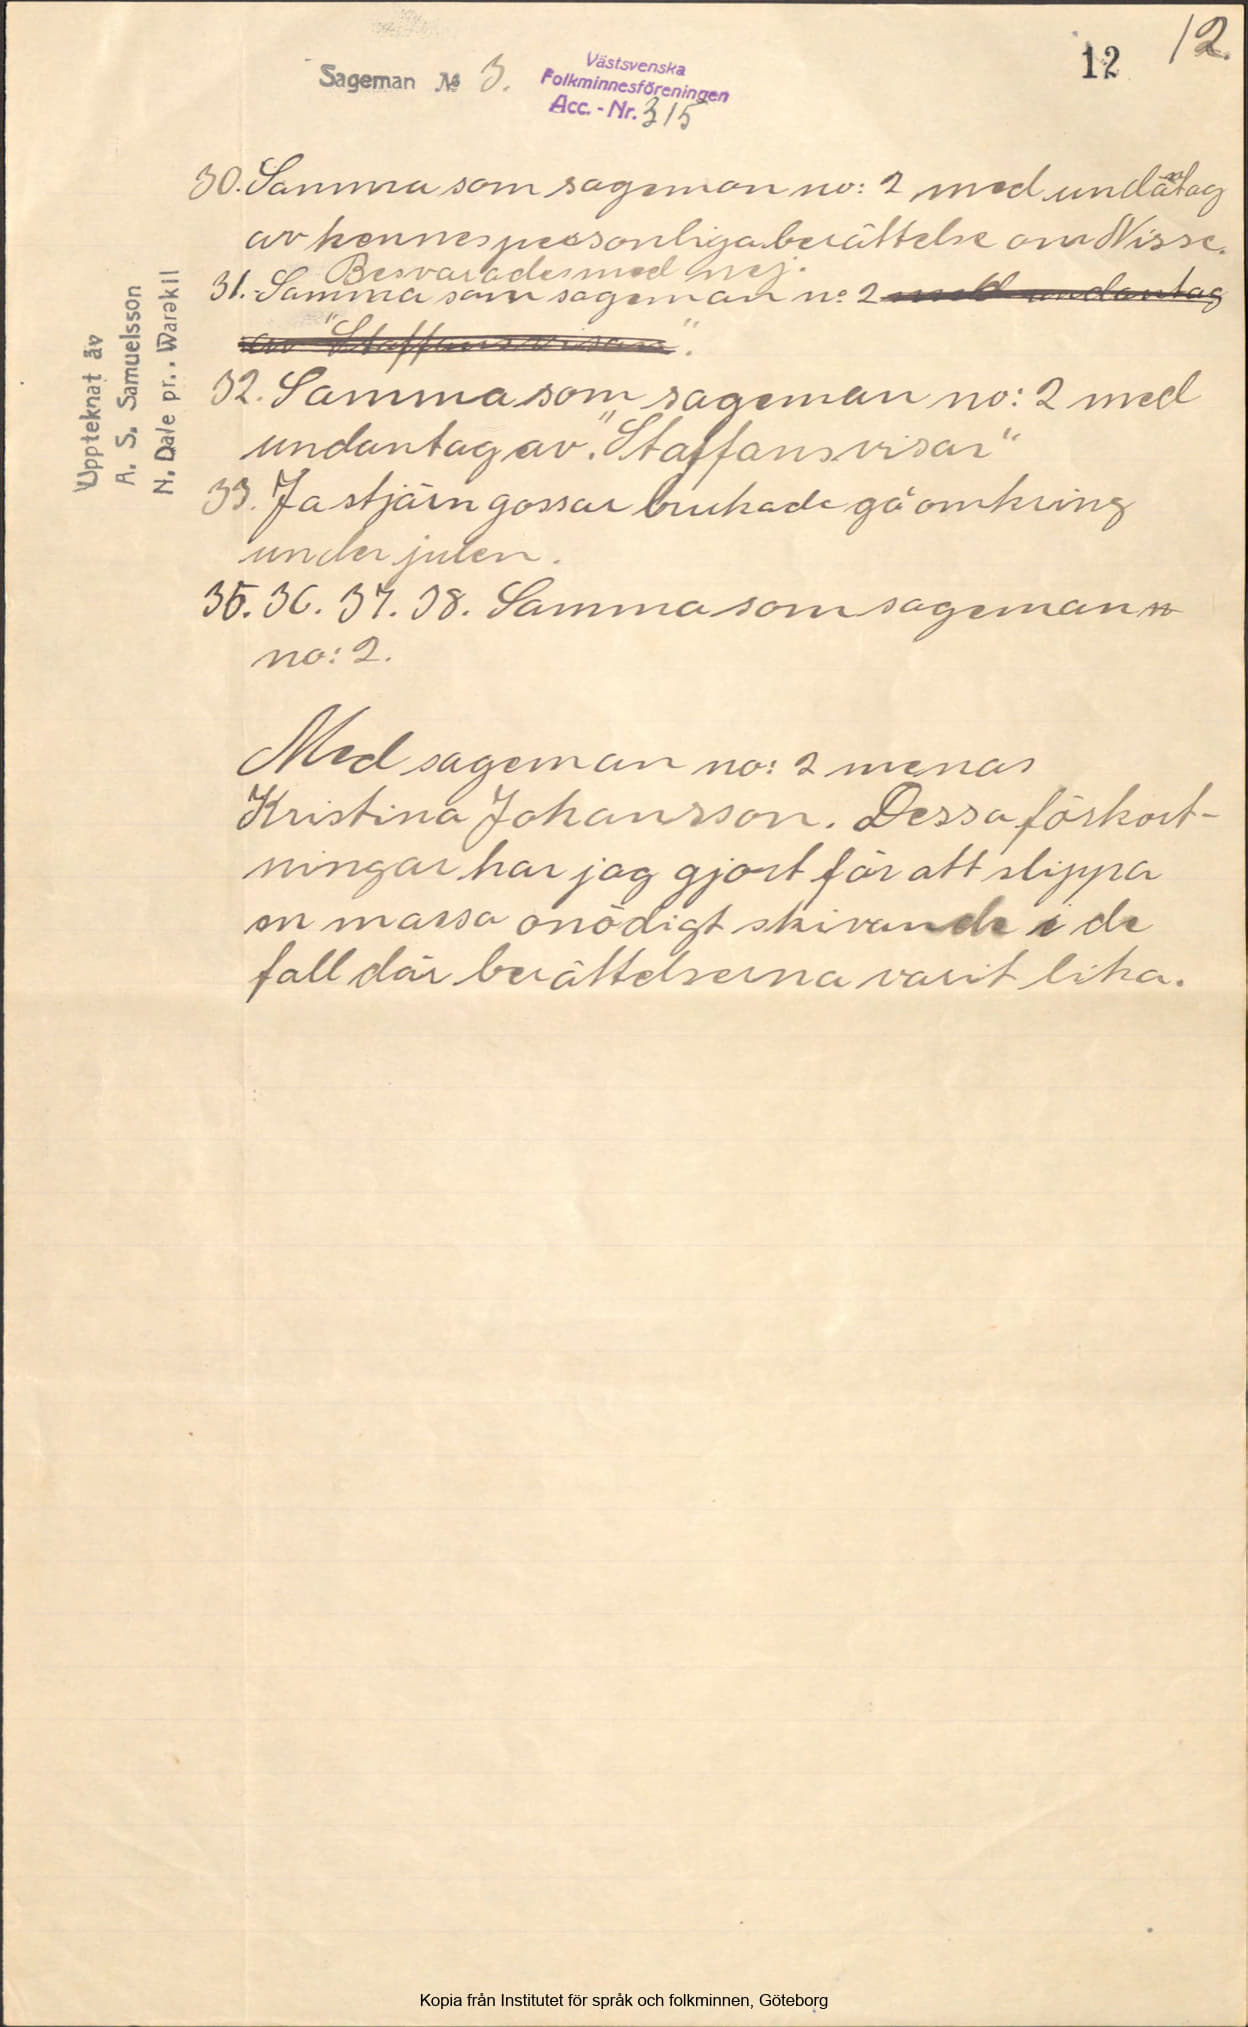 12 12.
Sageman № 3.
Västsvenska
Folkminnesföreningen
Acc. - Nr. 315
Uppteknat äv
A. S. Samuelsson
N. Dale pr.. Warəkil
30. Samma som sageman no: 2 med undantag
av hennes personliga berättelse om Nisse.
Besvarades med nej.
31. Samma som sageman no 2 med undantag
av "Staffansvisan".
32. Samma som sageman no: 2 med
undantag av. "Staffansvisar"
33. Ja stjärngossar brukade gå omkring
under julen.
35. 36. 37. 38. Samma som sageman n
no: 2.
Med sageman no: 2 menas
Kristina Johansson. Dessa förkort-
ningar har jag gjort för att slippa
en massa onödigt skivande i de
fall där berättelserna varit lika.
Kopia från Institutet för språk och folkminnen, Göteborg